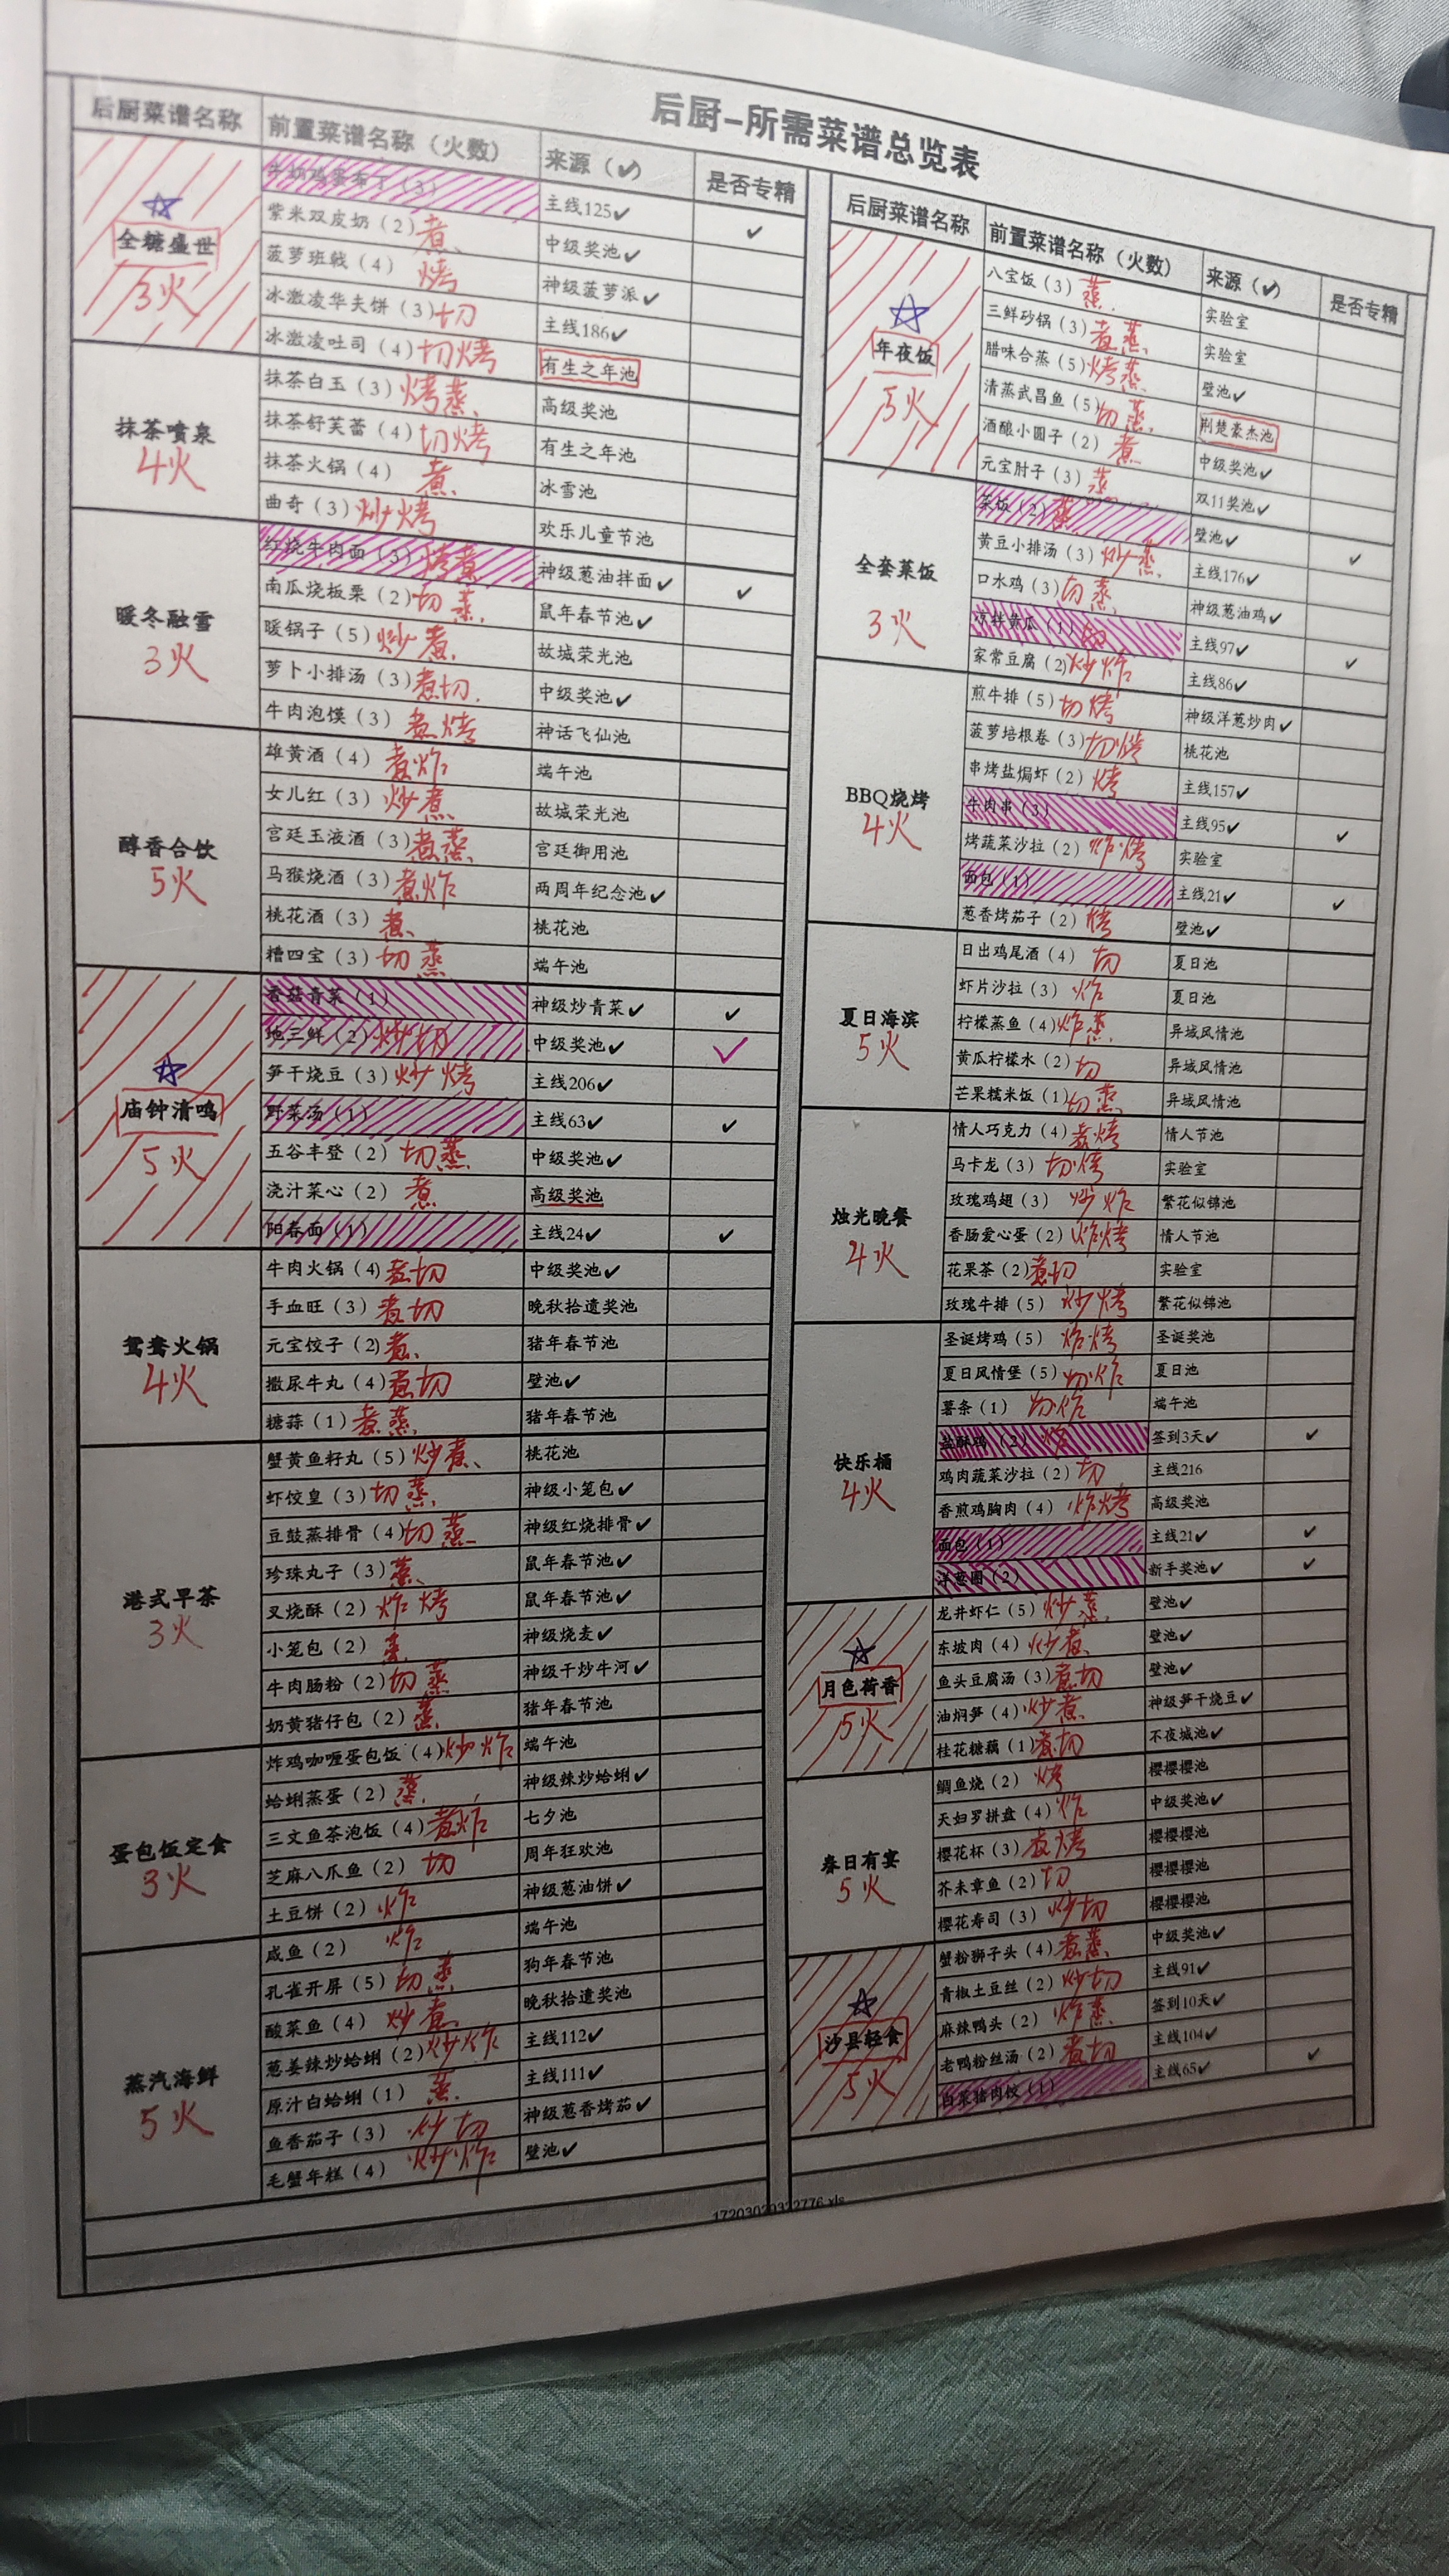 后厨-所需菜谱总览表
后厨菜谱名称 前置菜谱名称（火数） 来源（✓） 是否专精
全糖盛世 3火
牛奶鸡蛋布丁（3） 主线125✓ ✓
紫米双皮奶（2）煮 中级奖池✓
菠萝班戟（4）烤 神级菠萝派✓
冰激凌华夫饼（3）切 主线186✓
冰激凌吐司（4）切烤 有生之年池
抹茶喷泉 4火
抹茶白玉（3）烤蒸 高级奖池
抹茶舒芙蕾（4）切烤 有生之年池
抹茶火锅（4）煮 冰雪池
曲奇（3）炒烤 欢乐儿童节池
暖冬融雪 3火
红烧牛肉面（3）烤煮 神级葱油拌面✓ ✓
南瓜烧板栗（2）切蒸 鼠年春节池✓
暖锅子（5）炒煮 故城荣光池
萝卜小排汤（3）煮切 中级奖池✓
牛肉泡馍（3）煮烤 神话飞仙池
醇香合饮 5火
雄黄酒（4）煮炸 端午池
女儿红（3）炒煮 故城荣光池
宫廷玉液酒（3）煮蒸 宫廷御用池
马猴烧酒（3）煮炸 两周年纪念池✓
桃花酒（3）煮 桃花池
糟四宝（3）切蒸 端午池
庙钟清鸣 5火
香菇青菜（1） 神级炒青菜✓ ✓
地三鲜（2）炒切 中级奖池✓ ✓
笋干烧豆（3）炒烤 主线206✓
野菜汤（1） 主线63✓ ✓
五谷丰登（2）切蒸 中级奖池✓
浇汁菜心（2）煮 高级奖池
阳春面（1） 主线24✓ ✓
鸳鸯火锅 4火
牛肉火锅（4）煮切 中级奖池✓
手血旺（3）煮切 晚秋拾遗奖池
元宝饺子（2）煮 猪年春节池
撒尿牛丸（4）煮切 壁池✓
糖蒜（1）煮蒸 猪年春节池
港式早茶 3火
蟹黄鱼籽丸（5）炒煮 桃花池
虾饺皇（3）切蒸 神级小笼包✓
豆鼓蒸排骨（4）切蒸 神级红烧排骨✓
珍珠丸子（3）蒸 鼠年春节池✓
叉烧酥（2）炸烤 鼠年春节池✓
小笼包（2）蒸 神级烧麦✓
牛肉肠粉（2）切蒸 神级干炒牛河✓
奶黄猪仔包（2）蒸 猪年春节池
蛋包饭定食 3火
炸鸡咖喱蛋包饭（4）炒炸 端午池
蛤蜊蒸蛋（2）蒸 神级辣炒蛤蜊✓
三文鱼茶泡饭（4）煮炸 七夕池
芝麻八爪鱼（2）切 周年狂欢池
土豆饼（2）炸 神级葱油饼✓
蒸汽海鲜 5火
咸鱼（2）炸 端午池
孔雀开屏（5）切蒸 狗年春节池
酸菜鱼（4）炒煮 晚秋拾遗奖池
葱姜辣炒蛤蜊（2）炒炸 主线112✓
原汁白蛤蜊（1）蒸 主线111✓
鱼香茄子（3）炒切 神级葱香烤茄✓
毛蟹年糕（4）炒炸 壁池✓
后厨菜谱名称 前置菜谱名称（火数） 来源（✓） 是否专精
年夜饭 5火
八宝饭（3）蒸 实验室
三鲜砂锅（3）煮蒸 实验室
腊味合蒸（5）烤蒸 壁池✓
清蒸武昌鱼（5）切蒸 荆楚豪杰池
酒酿小圆子（2）煮 中级奖池✓
元宝肘子（3）蒸 双11奖池✓
全套菜饭 3火
菜饭（2）蒸 壁池✓ ✓
黄豆小排汤（3）炒蒸 主线176✓
口水鸡（3）切蒸 神级葱油鸡✓
凉拌黄瓜（1）切 主线97✓ ✓
家常豆腐（2）炒炸 主线86✓
BBQ烧烤 4火
煎牛排（5）切烤 神级洋葱炒肉✓
菠萝培根卷（3）切烤 桃花池
串烤盐焗虾（2）烤 主线157✓
牛肉串（3） 主线95✓ ✓
烤蔬菜沙拉（2）炸烤 实验室
面包（1） 主线21✓ ✓
葱香烤茄子（2）烤 壁池✓
夏日海滨 5火
日出鸡尾酒（4）切 夏日池
虾片沙拉（3）炸 夏日池
柠檬蒸鱼（4）炸蒸 异域风情池
黄瓜柠檬水（2）切 异域风情池
芒果糯米饭（1）切蒸 异域风情池
烛光晚餐 4火
情人巧克力（4）煮烤 情人节池
马卡龙（3）切烤 实验室
玫瑰鸡翅（3）炒炸 繁花似锦池
香肠爱心蛋（2）炸烤 情人节池
花果茶（2）煮切 实验室
玫瑰牛排（5）炒烤 繁花似锦池
快乐桶 4火
圣诞烤鸡（5）炸烤 圣诞奖池
夏日风情堡（5）切炸 夏日池
薯条（1）切炸 端午池
盐酥鸡（2）炸 签到3天✓ ✓
鸡肉蔬菜沙拉（2）切 主线216
香煎鸡胸肉（4）炸烤 高级奖池
面包（1） 主线21✓ ✓
洋葱圈（2） 新手奖池✓ ✓
月色荷香 5火
龙井虾仁（5）炒蒸 壁池✓
东坡肉（4）炒煮 壁池✓
鱼头豆腐汤（3）煮切 壁池✓
油焖笋（4）炒煮 神级笋干烧豆✓
桂花糖藕（1）煮切 不夜城池✓
春日有宴 5火
鲷鱼烧（2）烤 樱樱樱池
天妇罗拼盘（4）炸 中级奖池✓
樱花杯（3）煮烤 樱樱樱池
芥未章鱼（2）切 樱樱樱池
樱花寿司（3）炒切 樱樱樱池
沙县轻食 5火
蟹粉狮子头（4）煮蒸 中级奖池✓
青椒土豆丝（2）炒切 主线91✓
麻辣鸭头（2）炸蒸 签到10天✓
老鸭粉丝汤（2）煮切 主线104✓
白菜猪肉饺（1） 主线65✓ ✓